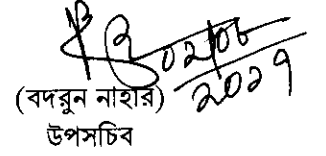 ০২/০৮
২০২৭
(বদরুন নাহার)
উপসচিব